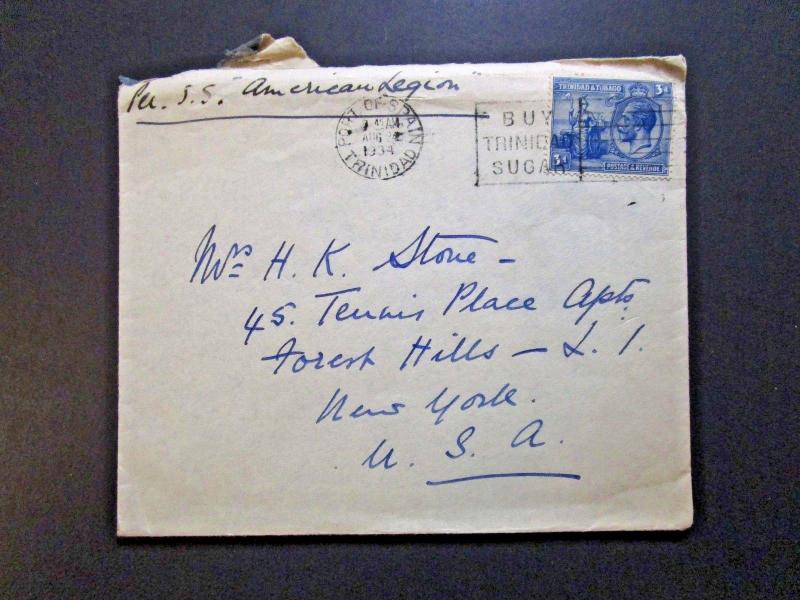 Per. S.S. "American Legion"
PORT OF SPAIN
45 AM
AUG
1934
TRINIDAD
BUY
TRINIDAD
SUGAR
TRINIDAD & TOBAGO
3d
3d
POSTAGE & REVENUE
Mrs H. K. Stone -
45. Tennis Place Apts
Forest Hills - L. I.
New York.
U. S. A.